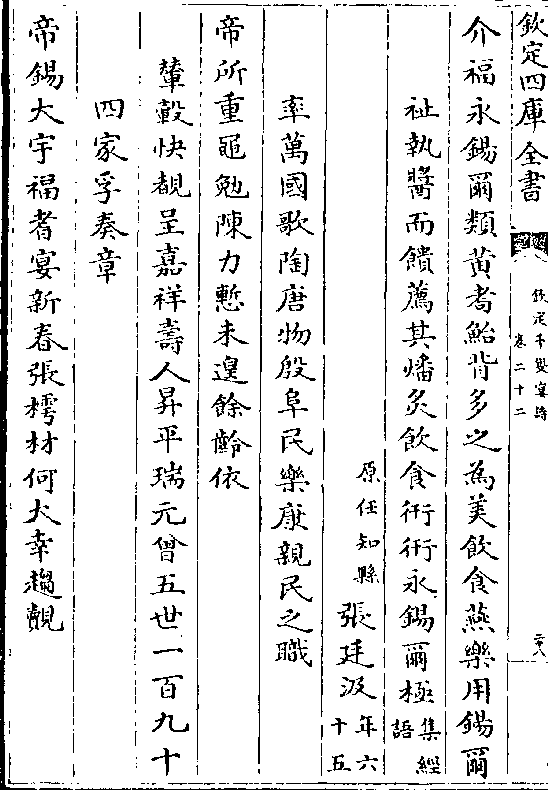 欽定四庫全書
欽定千叟宴詩
卷二十二
二十八
介福永錫爾類黃耇鮐背多之為美飲食燕樂用錫爾
祉執醬而饋薦其燔炙飲食衎衎永錫爾極集經語
原任知縣張廷汲年六十五
率萬國歌陶唐物殷阜民樂康親民之職
帝所重黽勉陳力慙未遑餘齡依
輦轂快覩呈嘉祥壽人昇平瑞元曾五世一百九十
四家孚奏章
帝錫大宇福耆宴新春張樗材何大幸趨覲